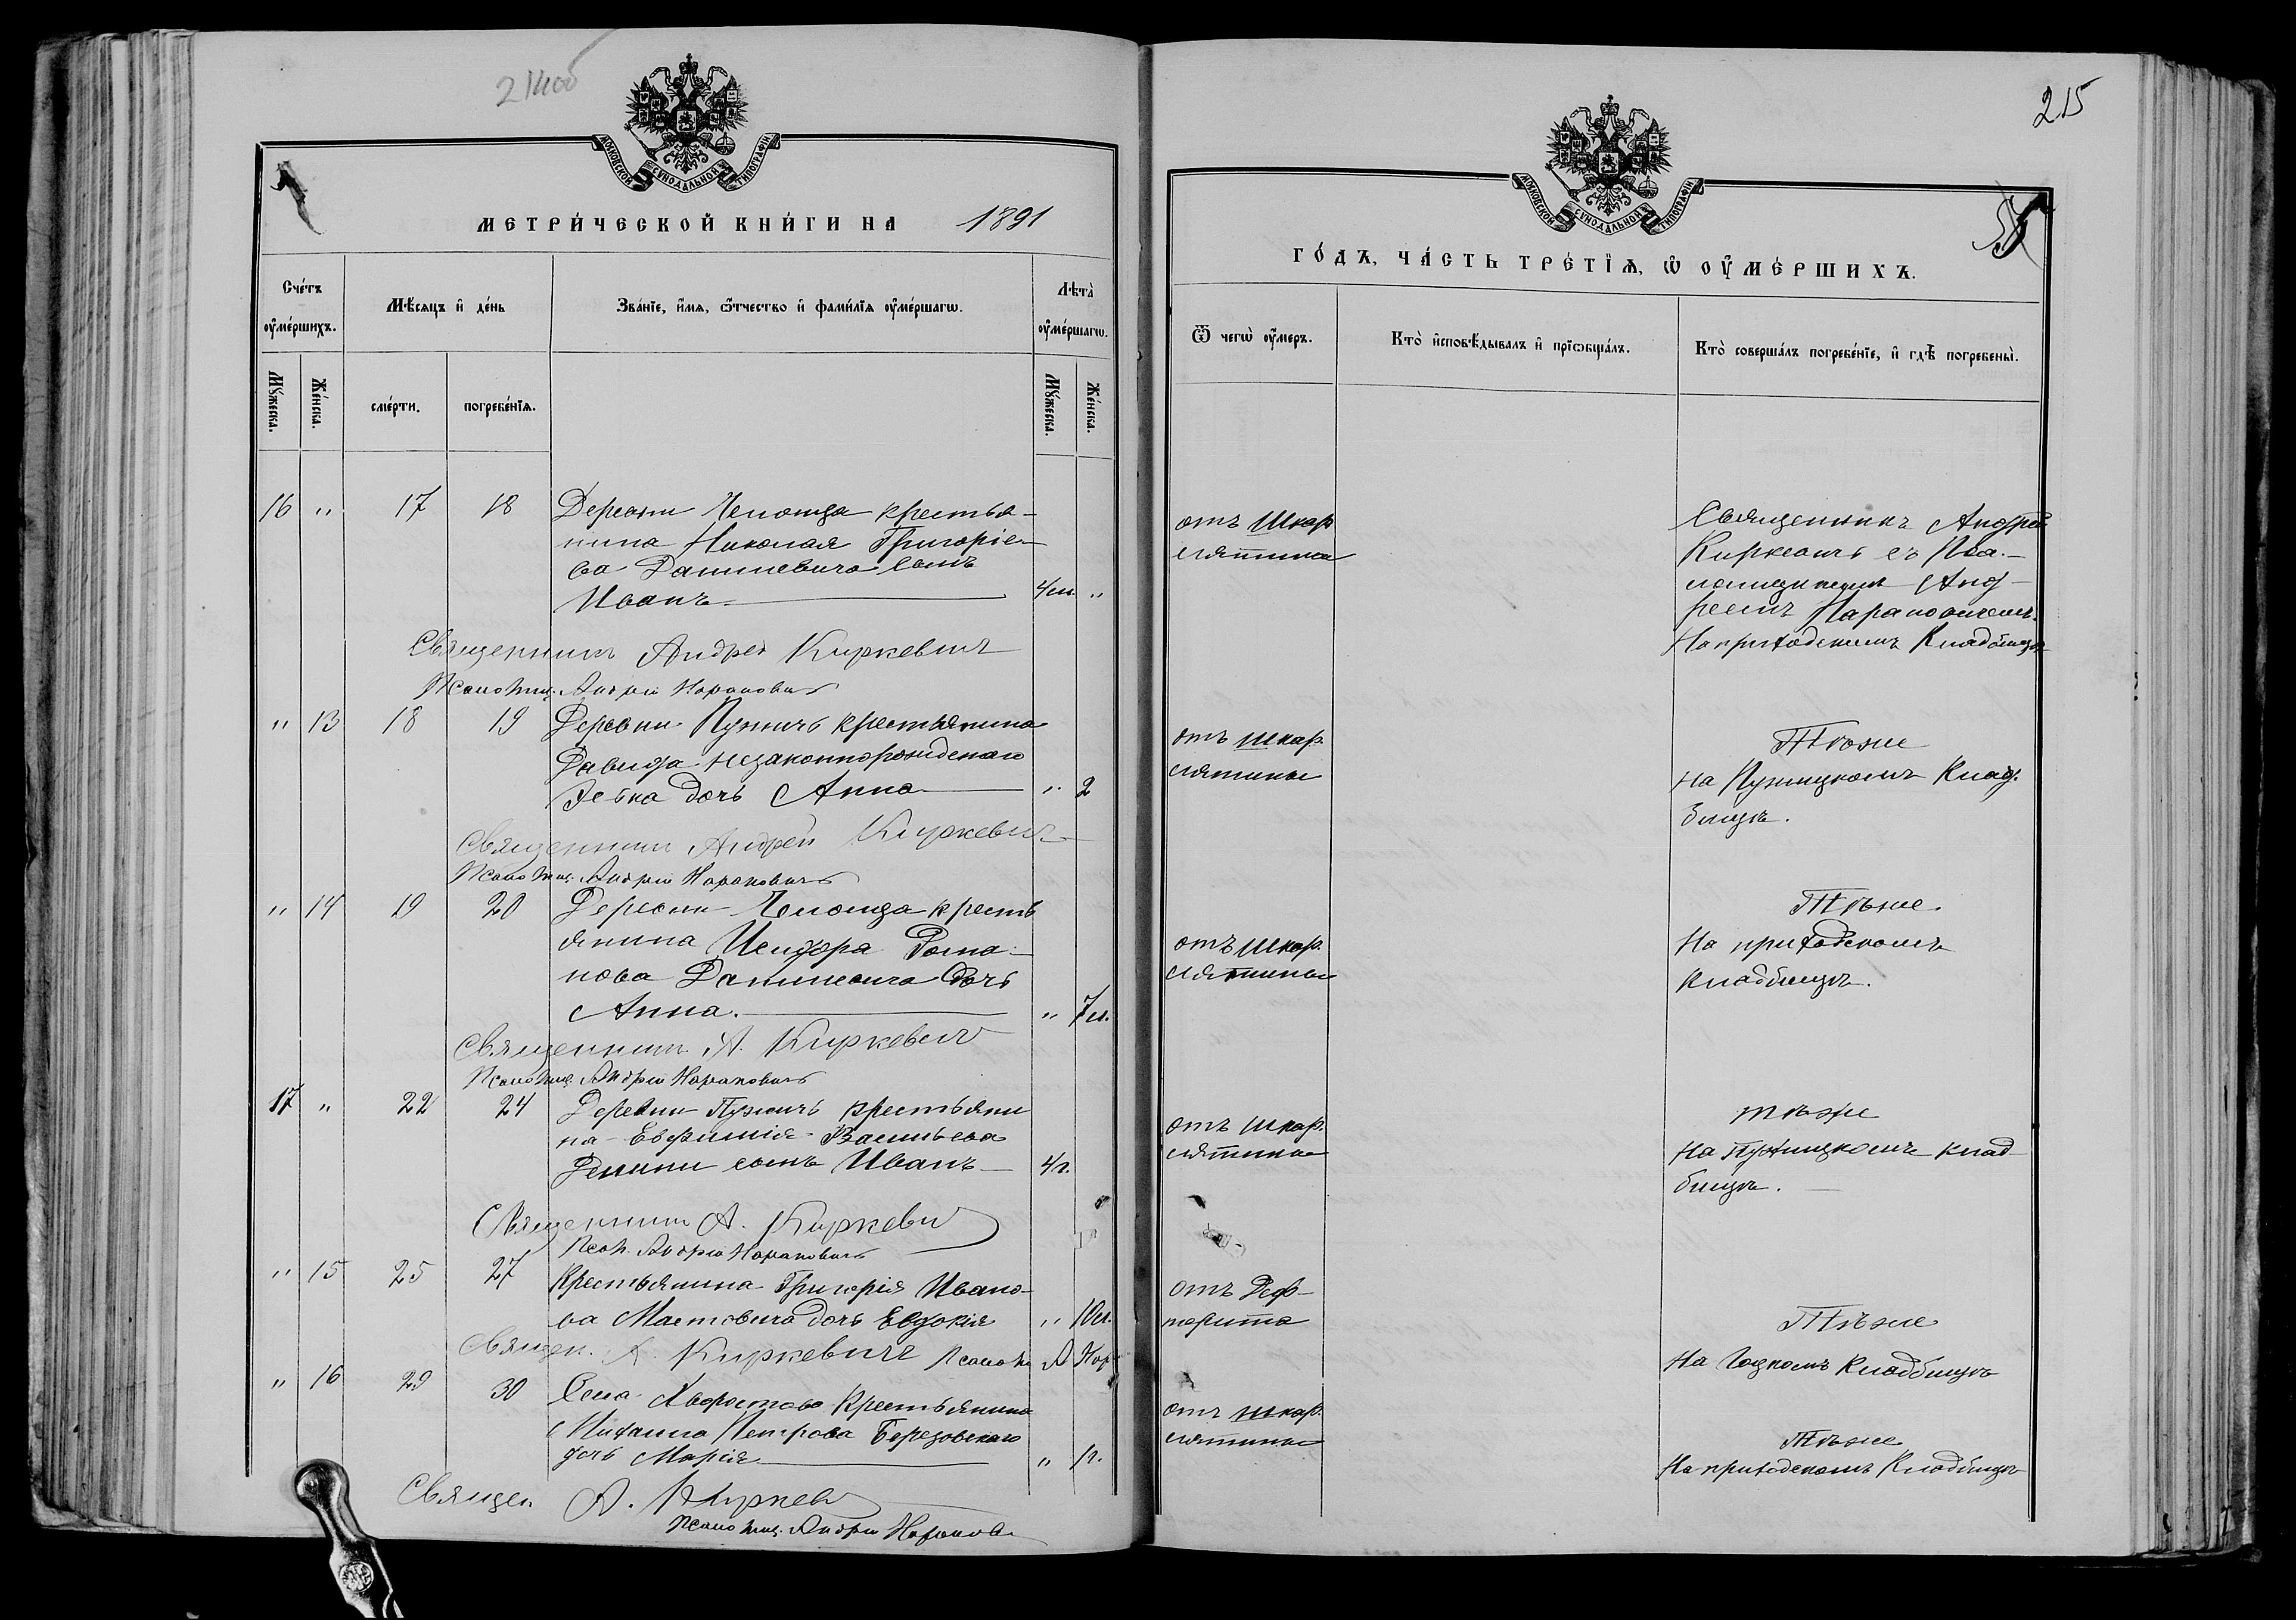 214об
МОСКОВСКОЙ СѴНОДАЛЬНОЙ ТИПОГРАФІИ
МЕТРИ́ЧЕСКОЙ КНИ́ГИ НА 1891
Сче́тъ оу҆ме́ршихъ.
Мѣ́сяцъ и҆ де́нь
Зва́нїе, и҆́мя, ѻ҆́тчество и҆ фами́лїя оу҆ме́ршагѡ.
Лѣта̀ оу҆ме́ршагѡ.
Мꙋ́жеска.
Же́нска.
сме́рти.
погребе́нїѧ.
Мꙋ́жеска.
Же́нска.
16 " 17 18 Деревни Чепоница крестья-
нина Николая Григоріе-
ва Данилевича сынъ
Иванъ 4м. "
Священникъ Андрей Киркевичъ
Псаломщ. Андрей Наранович
" 13 18 19 Деревни Пужичъ крестьянина
Давида незаконнорожденаго
дочь Анна " 2
Священникъ Андрей Киркевич
Псаломщ. Андрей Нарановичъ
" 14 19 20 Деревни кресть
янина Исидора Рома-
нова Данилевича дочь
Анна. " 7м.
Священникъ А. Киркевич
Псаломщ. Андрей Нарановичъ
17 " 22 24 Деревни Пужичъ крестьяни
на Евфимія Васильева
сынъ Иванъ 4г.
Священникъ А. Киркевич
Псал. Андрей Нарановичъ
" 15 25 27 Крестьянина Григорія Ивано-
ва дочь Евдокія " 10м.
Священ. А. Киркевичъ Псалом А Нар
" 16 29 30 Села Хворостова крестьянина
Михаила Петрова Березовскаго
дочь Марія " 1г.
Священ А. Киркев
Псаломщ. Андрей Наранов
215
МОСКОВСКОЙ СѴНОДАЛЬНОЙ ТИПОГРАФІИ
ГО́ДЪ, ЧА́СТЬ ТРЕ́ТЇѦ, Ѡ҆ ОУ҆МЕ́РШИХЪ.
Ѿ чегѡ̀ оу҆́меръ.
Кто̀ и҆сповѣ́дывалъ и҆ прїѡбща́лъ.
Кто̀ соверша́лъ погребе́нїе, и҆ гдѣ̀ погребены̀.
отъ Шкар
лятины
Священникъ Андрей
Киркевичъ съ Пса-
ломщикомъ Анд
реемъ Нарановичемъ.
На приходскомъ Кладбищѣ
отъ шкар.
лятины
Тѣже
на Пужицкомъ Клад.
бищѣ.
отъ Шкар.
лятины
Тѣже.
На приходскомъ
Кладбищѣ.
отъ шкар.
лятины
тѣже
На Пужицкомъ клад
бищѣ.
отъ Диф-
терита
Тѣже
На Гоцкомъ Кладбищѣ
отъ шкар.
лятины
Тѣже
На приходскомъ Кладбищѣ